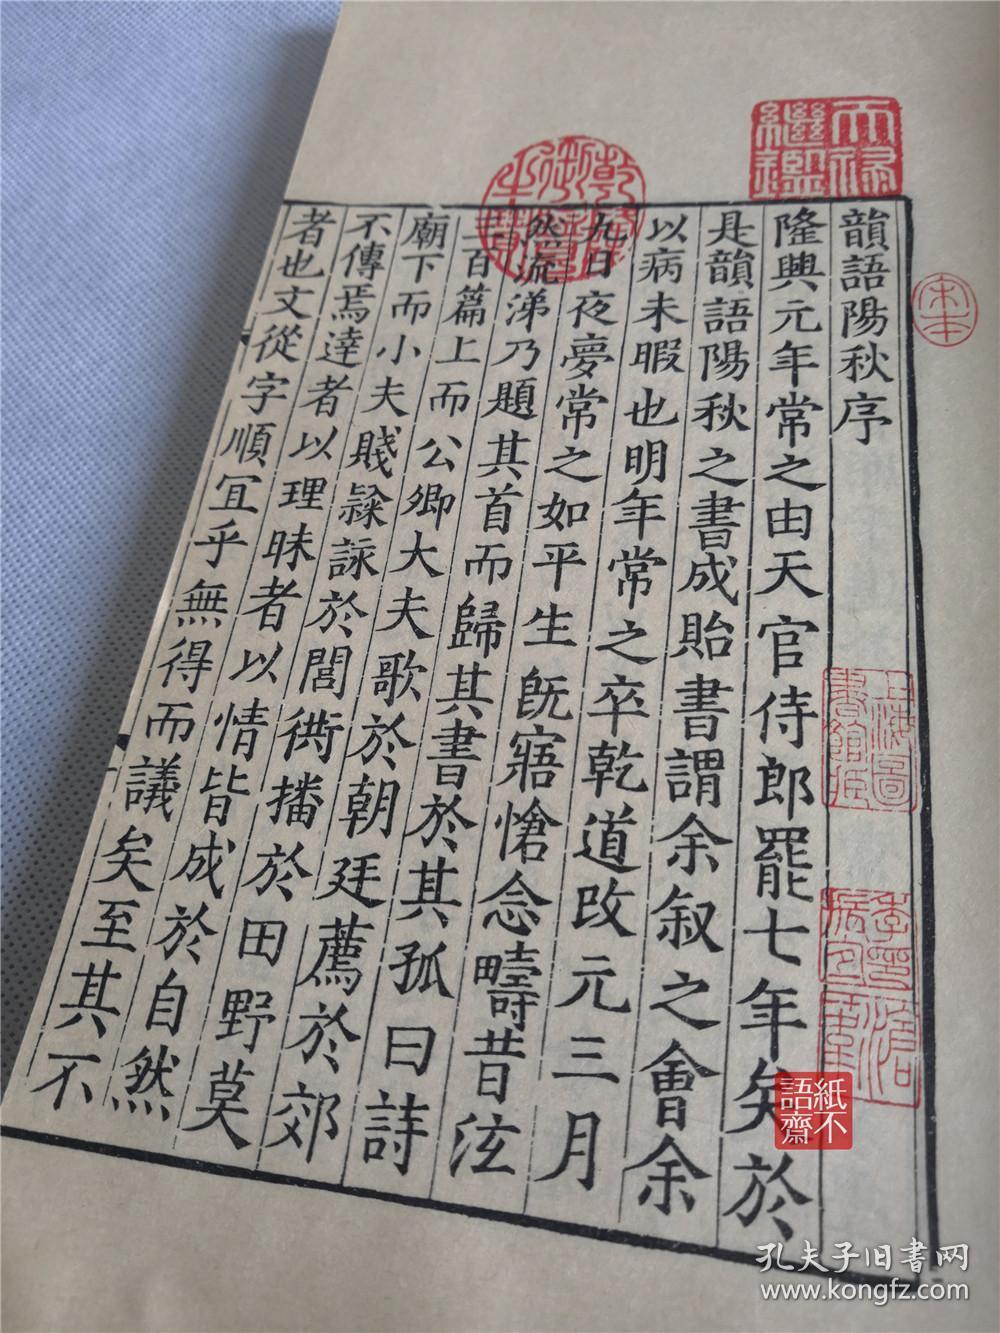 韻語陽秋序
隆興元年常之由天官侍郎罷七年矣於
是韻語陽秋之書成貽書謂余叙之會余
以病未暇也明年常之卒乾道改元三月
九日夜夢常之如平生旣寤愴念疇昔泫
然流涕乃題其首而歸其書於其孤曰詩
三百篇上而公卿大夫歌於朝廷薦於郊
廟下而小夫賤隸詠於閭衖播於田野莫
不傳焉達者以理昧者以情皆成於自然
者也文從字順冝乎無得而議矣至其不
天祿
繼鑑
乾隆
御覽
之寶
宋本
上海圖
書館藏
紙不
語齋
孔夫子旧書网
www.kongfz.com